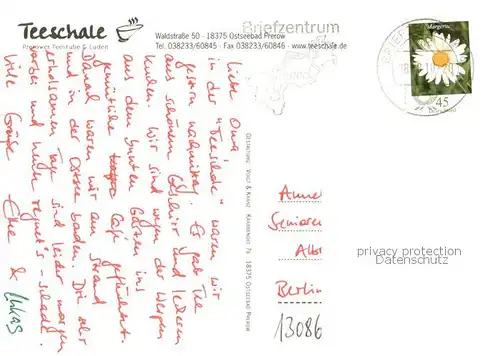 Teeschale
Prerower Teestube & Laden
Waldstraße 50 - 18375 Ostseebad Prerow
Tel. 038233/60845 · Fax 038233/60846 · www.teeschale.de
Briefzentrum
Margerite
45
Liebe Oma,
in der "Teeschale" waren wir
gestern nachmittag. Es gab Tee
aus schönem Geschirr und leckeren
Kuchen. Wir sind wegen der Wespen
aus dem bunten Garten ins
gemütliche Café geflüchtet.
Danach waren wir am Strand
und in der Ostsee baden. Die sehr
erholsamen Tage sind leider morgen
vorbei und heute regnet's - schade!
Viele Grüße Elke &
Lukas
GESTALTUNG: VOGT & KRANZ · KRABBENORT 7B · 18375 OSTSEEBAD PREROW
Anne
Senioren
Albr
Berlin
13086
privacy protection
Datenschutz